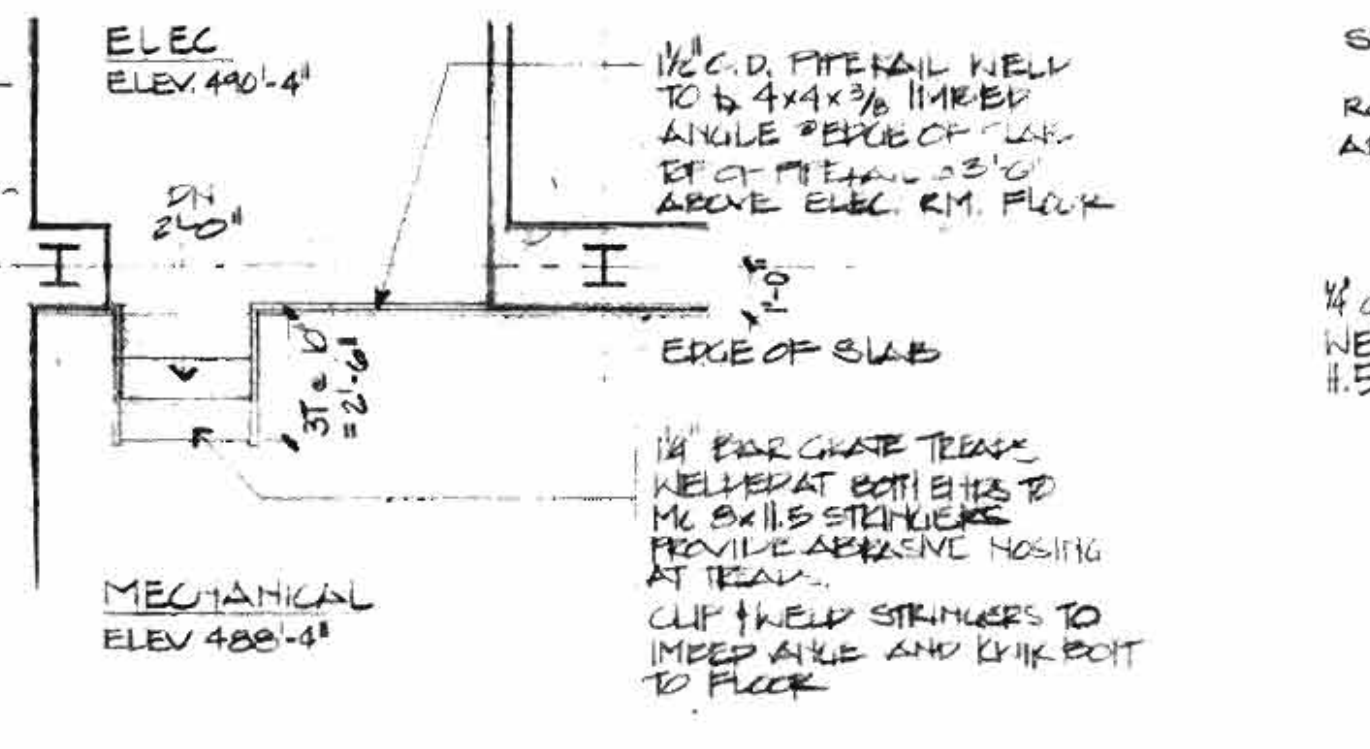 ELEC
ELEV. 490'-4"
DN
2'-0"
1½" O.D. PIPE RAIL WELD
TO 4x4x3/8 IMBED
ANGLE @ EDGE OF SLAB
TOP OF PIPE RAIL 3'-6"
ABOVE ELEC. RM. FLOOR
1'-0"
EDGE OF SLAB
3T @ 10
= 2'-6"
1¼" BAR GRATE TREADS
WELDED AT BOTH ENDS TO
MC 8x11.5 STRINGERS
PROVIDE ABRASIVE NOSING
AT TREADS.
CLIP & WELD STRINGERS TO
IMBED ANGLE AND KWIK BOLT
TO FLOOR
MECHANICAL
ELEV 488'-4"